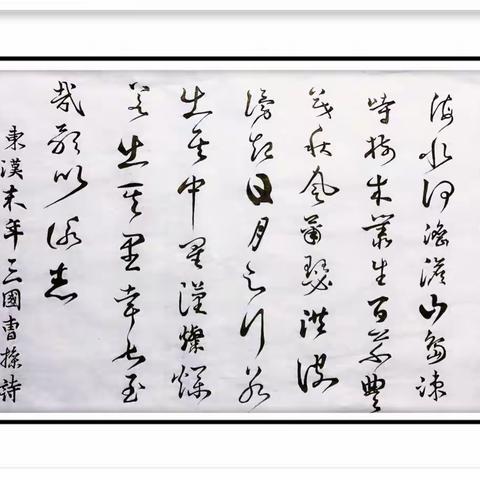 海水何澹澹山島竦
峙樹木叢生百草豐
茂秋風蕭瑟洪波
湧起日月之行若
出其中星漢燦爛
若出其里幸甚至
哉歌以詠志
東漢末年三國曹操詩